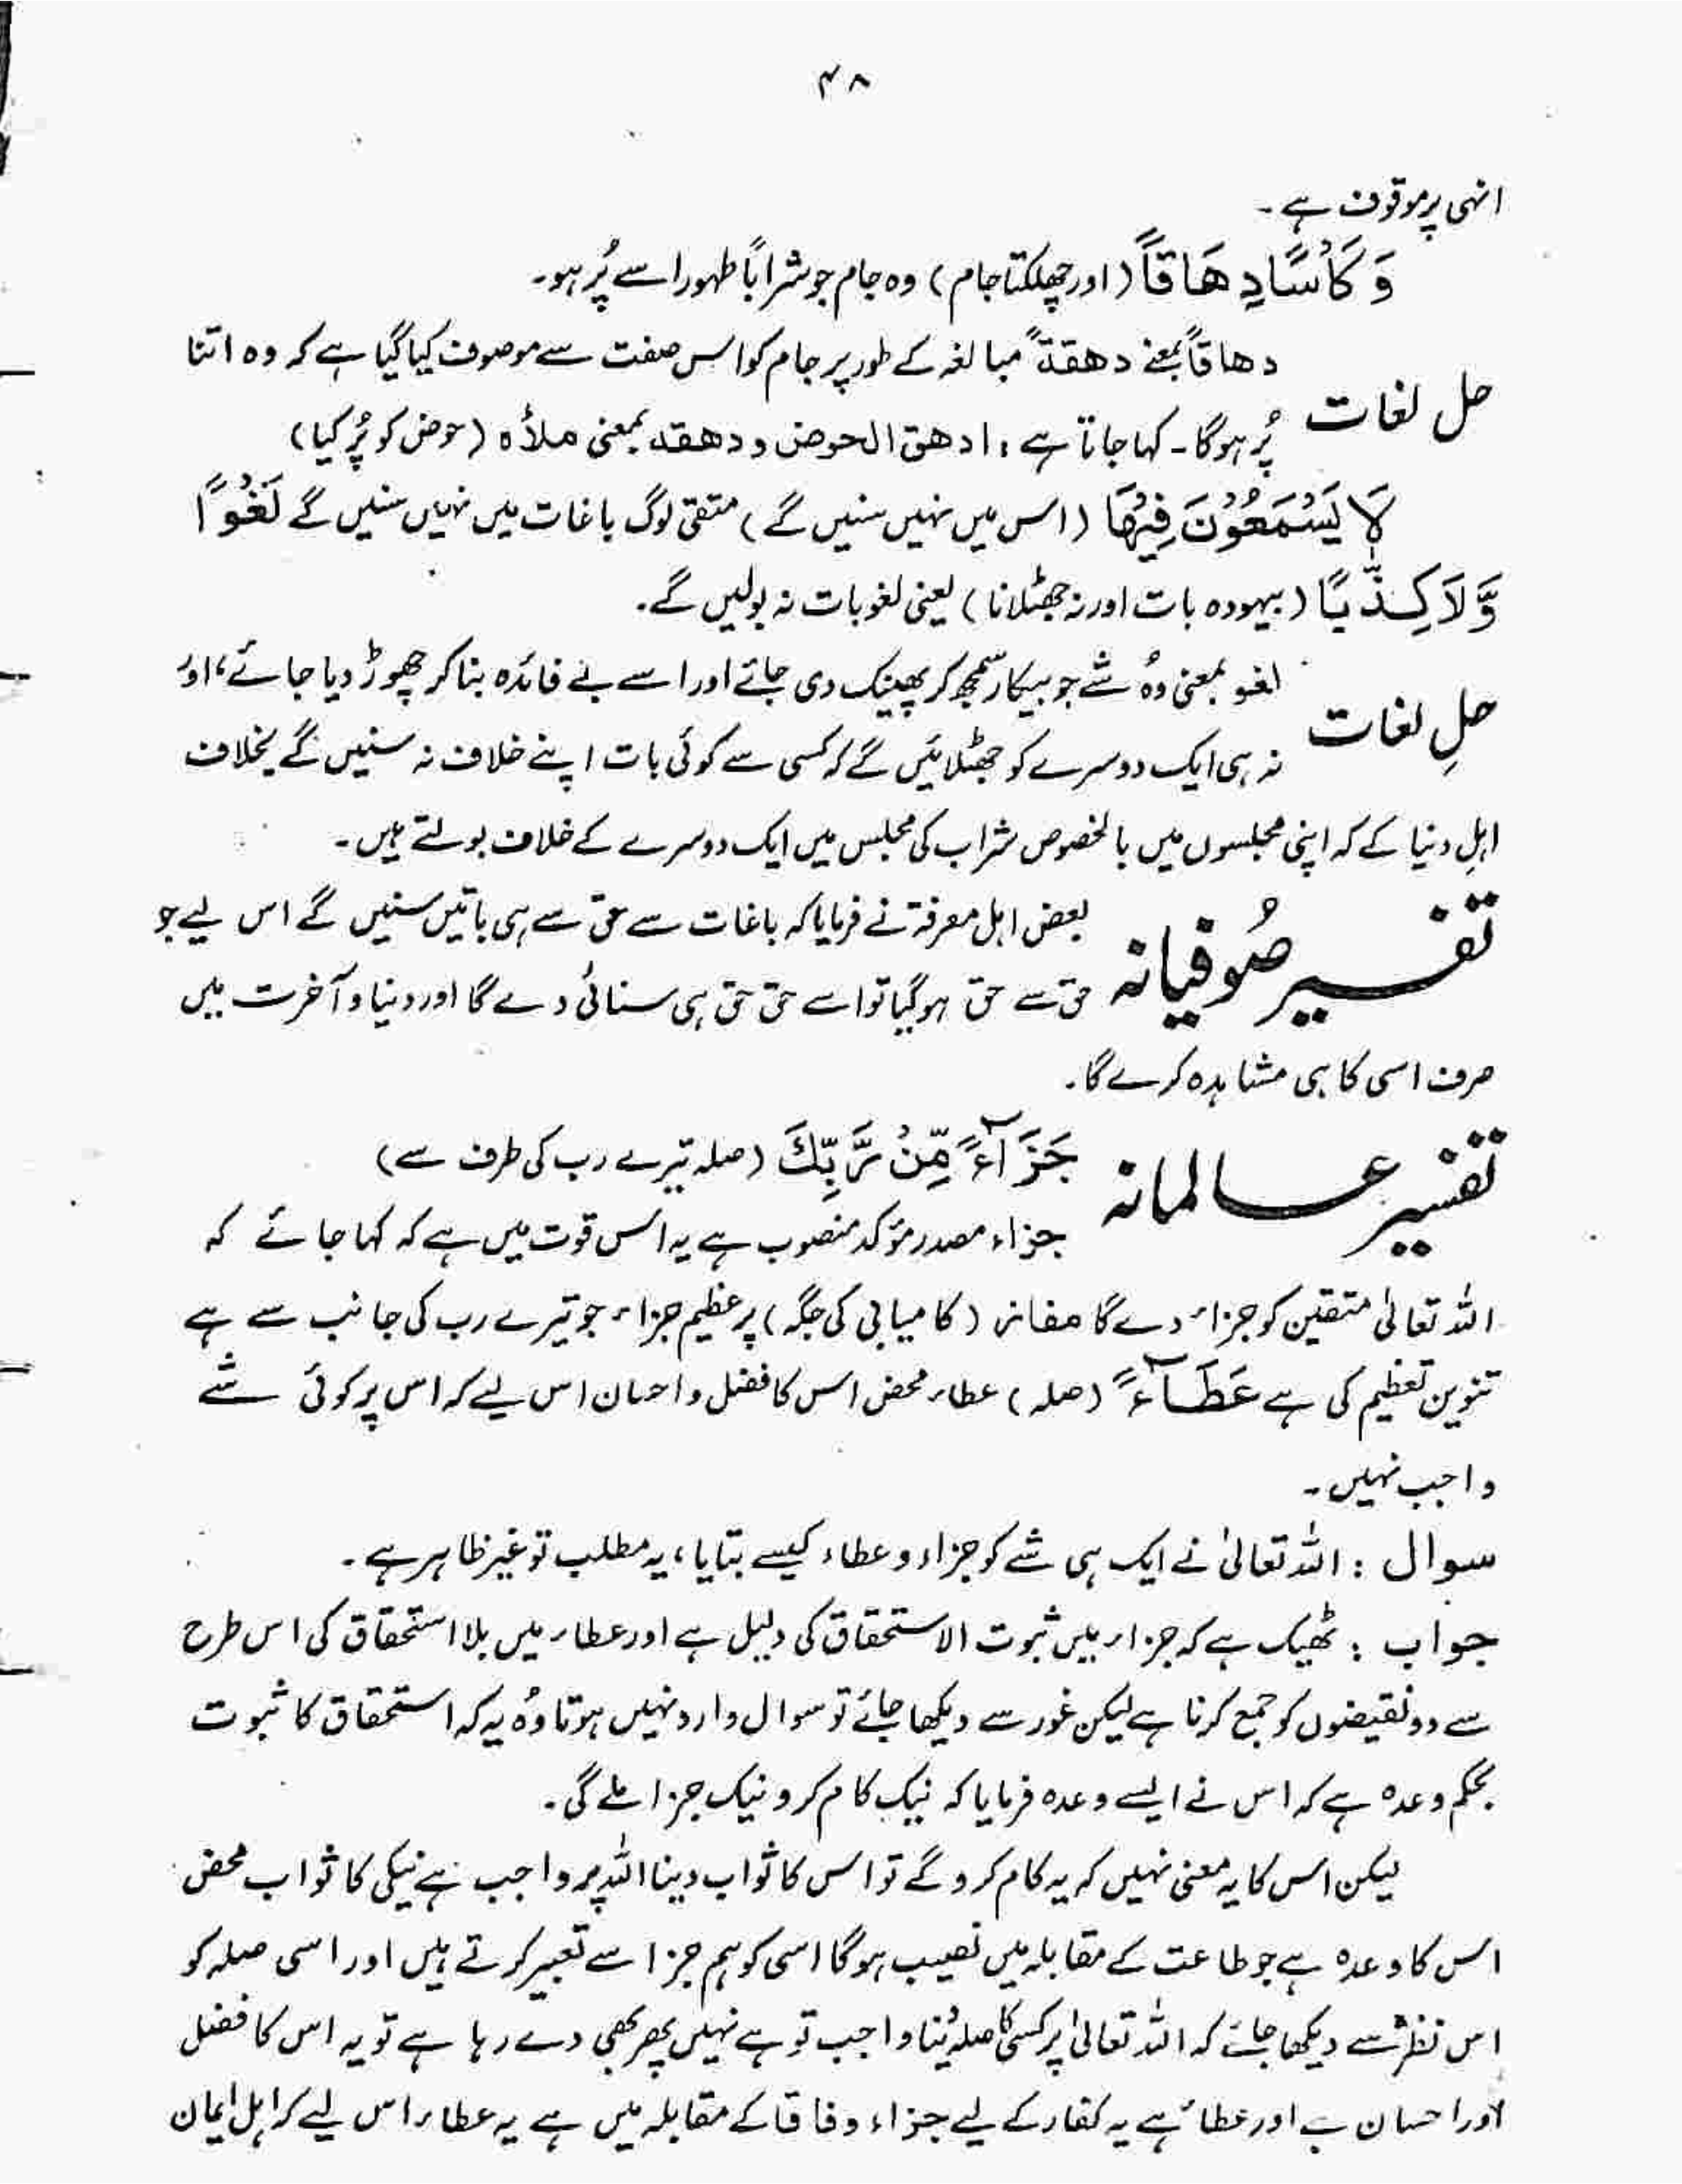 ۴۸
انہی پر موقوف ہے۔
وَكَأْسًا دِهَاقاً (اور چھلکتا جام) وہ جام جو شراباً طہورا سے پُر ہو۔
حل لغات
دھاقاً بمعنے دھقةً مبالغہ کے طور پر جام کو اس صفت سے موصوف کیا گیا ہے کہ وہ اتنا
پُر ہوگا۔ کہا جاتا ہے: ادھق الحوض و دھقہ بمعنی ملأہ (حوض کو پُر کیا)
لَا يَسْمَعُوْنَ فِيْهَا (اس میں نہیں سنیں گے) متقی لوگ باغات میں نہیں سنیں گے لَغْوًا
وَّلَا كِذّٰبًا (بیہودہ بات اور نہ جھٹلانا) یعنی لغو بات نہ بولیں گے۔
حلِ لغات
لغو بمعنی وہُ شے جو بیکار سمجھ کر پھینک دی جائے اور اسے بے فائدہ بنا کر چھوڑ دیا جائے، اور
نہ ہی ایک دوسرے کو جھٹلائیں گے کہ کسی سے کوئی بات اپنے خلاف نہ سنیں گے بخلاف
اہلِ دنیا کے کہ اپنی مجلسوں میں بالخصوص شراب کی مجلس میں ایک دوسرے کے خلاف بولتے ہیں۔
تفسیر صُوفیانہ
بعض اہل معرفۃ نے فرمایا کہ باغات سے حق سے ہی باتیں سنیں گے اس لیے جو
حق سے حق ہوگیا تو اسے حق حق ہی سنائی دے گا اور دنیا و آخرت میں
صرف اسی کا ہی مشاہدہ کرے گا۔
تفسیر عالمانہ
جَزَآءً مِّنْ رَّبِّكَ (صلہ تیرے رب کی طرف سے)
جزاء مصدر مؤکد منصوب ہے یہ اس قوت میں ہے کہ کہا جائے کہ
اللہ تعالیٰ متقین کو جزاء دے گا مفاز (کامیابی کی جگہ) پر عظیم جزاء جو تیرے رب کی جانب سے ہے
تنوین تعظیم کی ہے عَطَآءً (صلہ) عطاء محض اس کا فضل و احسان اس لیے کہ اس پر کوئی شے
واجب نہیں۔
سوال : اللہ تعالیٰ نے ایک ہی شے کو جزاء و عطاء کیسے بتایا، یہ مطلب تو غیر ظاہر ہے۔
جواب : ٹھیک ہے کہ جزاء میں ثبوت الاستحقاق کی دلیل ہے اور عطاء میں بلا استحقاق کی اس طرح
سے دو نقیضوں کو جمع کرنا ہے لیکن غور سے دیکھا جائے تو سوال وارد نہیں ہوتا وہُ یہ کہ استحقاق کا ثبوت
بحکم وعدہ ہے کہ اس نے ایسے وعدہ فرمایا کہ نیک کام کرو نیک جزا ملے گی۔
لیکن اس کا یہ معنی نہیں کہ یہ کام کرو گے تو اس کا ثواب دینا اللہ پر واجب ہے نیکی کا ثواب محض
اس کا وعدہ ہے جو طاعت کے مقابلہ میں نصیب ہوگا اسی کو ہم جزا سے تعبیر کرتے ہیں اور اسی صلہ کو
اس نظر سے دیکھا جائے کہ اللہ تعالیٰ پر کسی کا صلہ دینا واجب تو ہے نہیں پھر بھی دے رہا ہے تو یہ اس کا فضل
اور احسان ہے اور عطاء ہے یہ کفار کے لیے جزاء وفاقا کے مقابلہ میں ہے یہ عطاء اس لیے کہ اہل ایمان